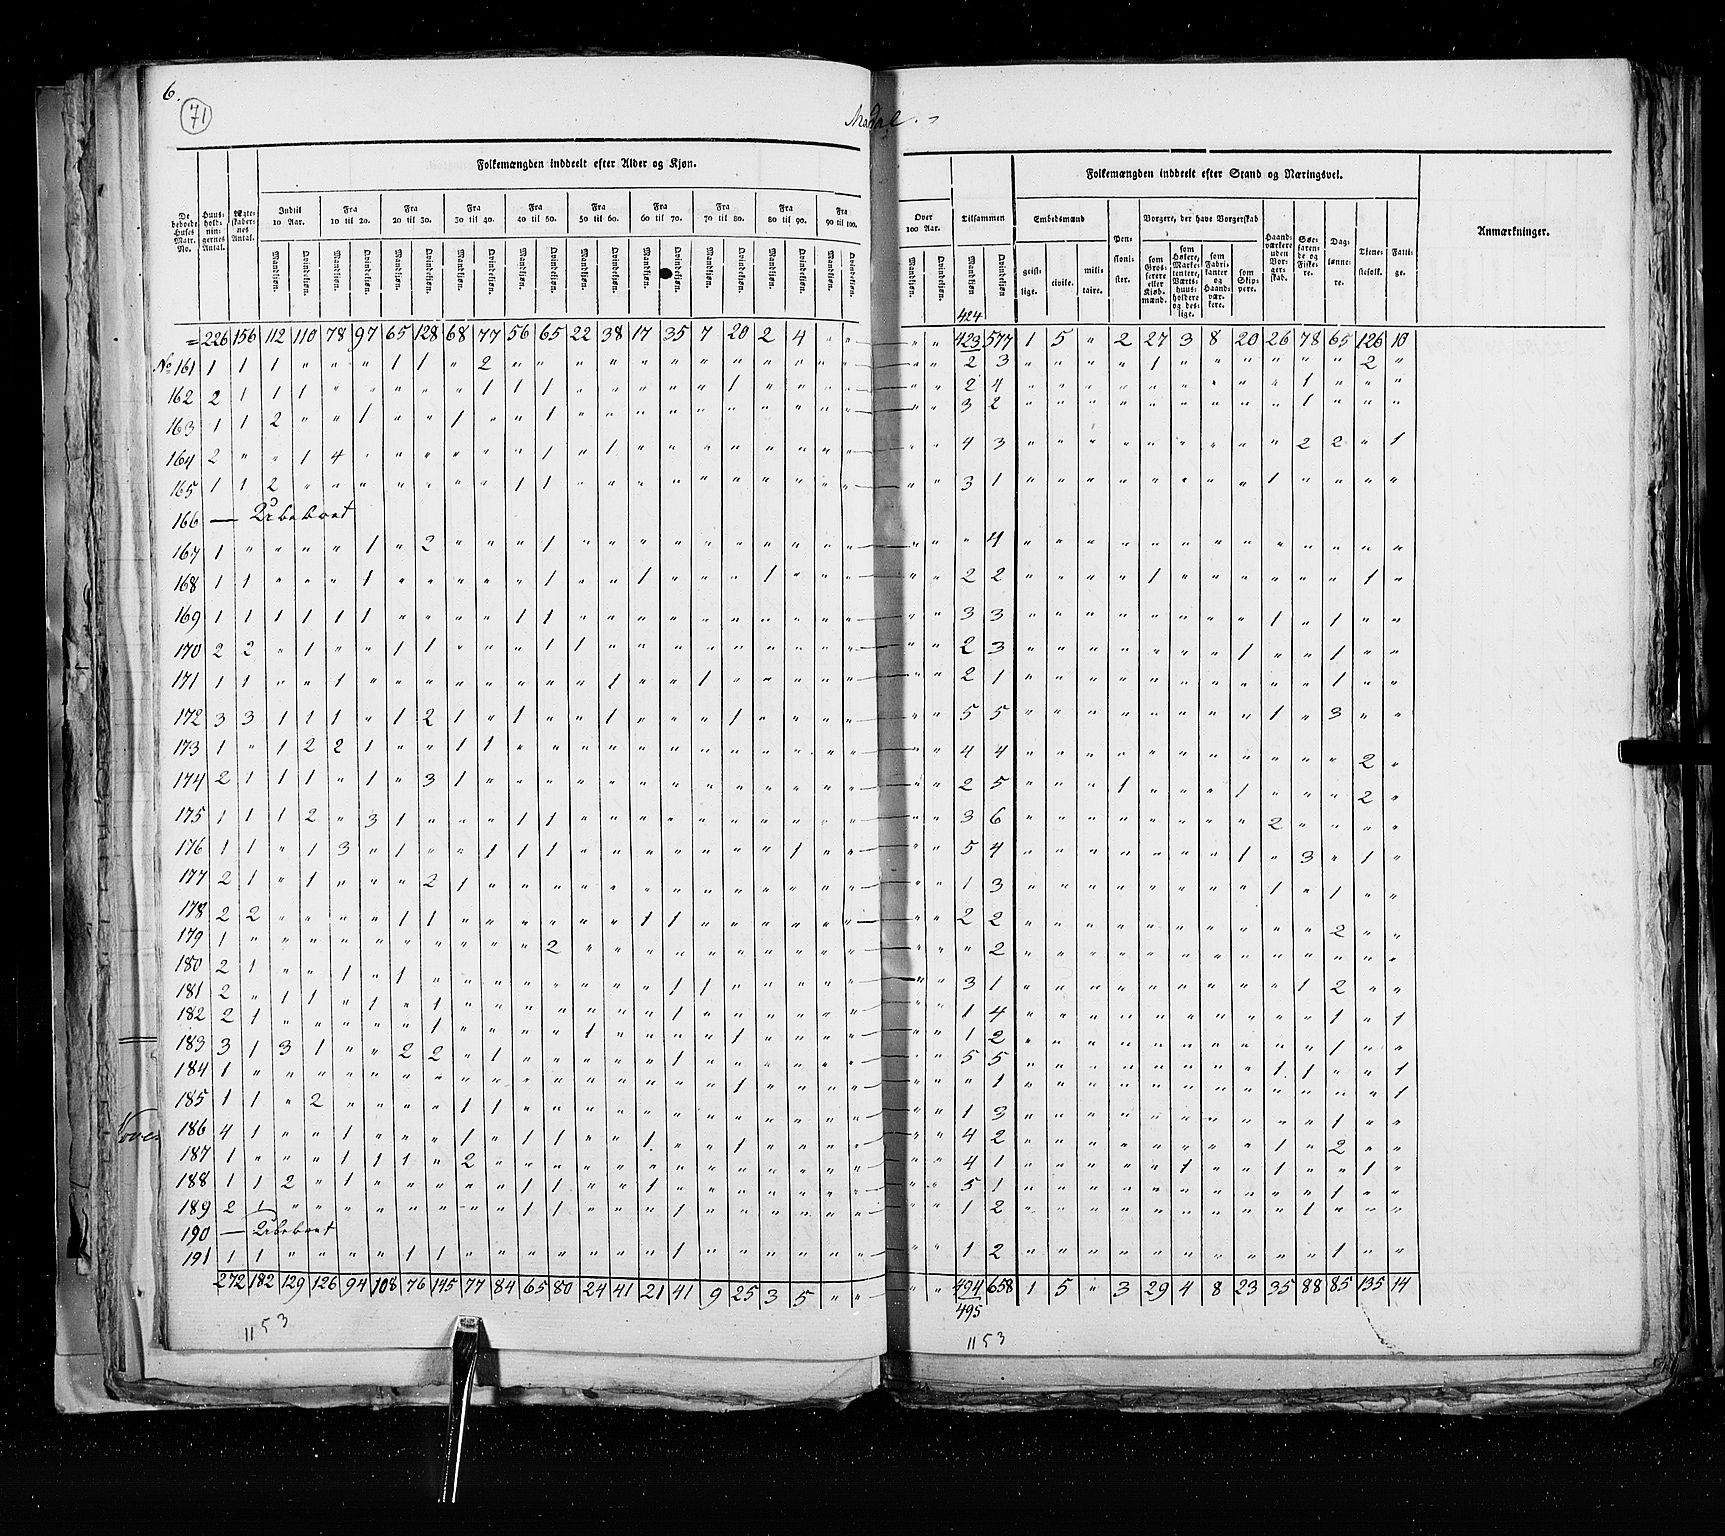 6.
71
Folkemængden inddeelt efter Alder og Kjøn.
Folkemængden inddeelt efter Stand og Næringsvei.
De beboede Huses Matr. No.
Huusholdningernes Antal.
Ægteskabernes Antal.
Indtil 10 Aar.
Fra 10 til 20.
Fra 20 til 30.
Fra 30 til 40.
Fra 40 til 50.
Fra 50 til 60.
Fra 60 til 70.
Fra 70 til 80.
Fra 80 til 90.
Fra 90 til 100.
Over 100 Aar.
Tilsammen
Mandkjøn. Qvindekjøn.
Embedsmænd
geistlige. civile. militaire.
Pensionister.
Borgere, der have Borgerskab
som Grosserere eller Kjøbmænd.
som Høkere, Marketentere, Værtshuusholdere og deslige.
som Fabrikanter og Haandværkere.
som Skippere.
Haandværkere uden Borgerskab.
Søefarende og Fiskere.
Daglønnere.
Tjenestefolk.
Fattige.
Anmærkninger.
424
= 226 156 112 110 78 97 65 128 68 77 56 65 22 38 17 35 7 20 2 4 " " " " 423 577 1 5 " 2 27 3 8 20 26 78 65 126 10
No 161 1 1 1 " " " 1 1 " 2 " " " " " " " " " " " " " " 2 3 " " " " 1 " " " " " " 2 "
162 2 1 1 1 " " " " " 1 1 1 " " " " " 1 " " " " " " 2 4 " " " " " " " " " 1 " " "
163 1 1 2 " " 1 " " 1 " " 1 " " " " " " " " " " " " 3 2 " " " " " " " " " 1 " " "
164 2 " " 1 4 " " " " " " 1 " 1 " " " " " " " " " " 4 3 " " " " " " " " " 2 2 " 1
165 1 1 2 " " " " " " " 1 1 " " " " " " " " " " " " 3 1 " " " " " " " " 1 " " " "
166 — Ubeboet
167 1 " " " " 1 " 2 " " " 1 " " " " " " " " " " " " " 4 " " " " " " " " " " " " "
168 1 1 " " " 1 " " " " " 1 " " 1 " " " 1 " " " " " 2 2 " " " " 1 " " " " " " 1 "
169 1 1 1 1 1 1 " " " " 1 1 " " " " " " " " " " " " 3 3 " " " " " " " " 1 " 1 " "
170 2 2 " 1 " " 1 1 " " " 1 1 " " " " " " " " " " " 2 3 " " " " " " " 1 " " 1 " "
171 1 1 " " 1 " " " " " " " " 1 " " 1 " " " " " " " 2 1 " " " " " " " " " " 1 " "
172 3 3 1 1 1 " 1 2 1 " 1 " " 1 " " " 1 " " " " " " 5 5 " " " " " " " " 1 " 3 " "
173 1 " 1 2 2 1 " " 1 1 " " " " " " " " " " " " " " 4 4 " " " " " " " " " " " 2 "
174 2 1 1 1 " 1 " 3 1 " " " " " " " " " " " " " " " 2 5 " " " 1 " " " 1 " " " 2 "
175 1 1 1 2 " 3 1 " " " 1 1 " " " " " " " " " " " " 3 6 " " " " " " " " 2 " " " "
176 1 1 " 1 3 " 1 " " 1 1 1 " " " " " " " 1 " " " " 5 4 " " " " " " " 1 " 3 " 1 "
177 2 1 " 1 " " " 2 1 " " " " " " " " " " " " " " " 1 3 " " " " " " " " 1 " 1 " "
178 2 2 " " " " 1 1 " " " " " " 1 1 " " " " " " " " 2 2 " " " " " " " " " " 2 " "
179 1 " " " " " " " " " " 2 " " " " " " " " " " " " " 2 " " " " " " " " " " " " "
180 2 1 " " 1 " 1 " " " " " " " " 1 1 " " " " " " " 3 1 " " " " " " " " " 1 2 " "
181 2 " 1 1 " 1 " 1 " " " " " " " 1 " " " " " " " " 1 4 " " " " " " " " " " 1 " 1
182 2 1 " " " " " 1 " " " " 1 " " " " 1 " " " " " " 1 2 " " " " " " " " " " 1 " "
183 3 1 3 1 " " 2 2 " 1 " " " " " 1 " " " " " " " " 5 5 " " " " " " " " 1 1 " " 1
184 1 " " " " " " " " " " " " " " " " 1 " " " " " " " 1 " " " " " " " " " " " " 1
185 1 1 " 2 " " " " 1 1 " " " " " " " " " " " " " " 1 3 " " " " " " " " " " 1 " "
186 4 1 " " 1 " " " 1 " 1 1 " " 1 " " 1 " " " " " " 4 2 " " " " " " " " 1 " 2 " "
187 1 " " " 1 1 1 " 2 " " " " " " " " " " " " " " " 4 1 " " " " " 1 " " 1 " " 1 "
188 1 1 2 " 1 " " " " " 1 1 " " 1 " " " " " " " " " 5 1 " " " " " " " " " " 1 " "
189 2 1 " " " " " " " " 1 1 " " " 1 " " " " " " " " 1 2 " " " " " " " " " 1 " " "
190 — Ubeboet
191 1 1 " " " " 1 1 " " " " " " " 1 " " " " " " " " 1 2 " " " " " " " " " " 1 " "
272 182 129 126 94 108 76 145 77 84 65 80 24 41 21 41 9 25 3 5 " " " " 494 658 1 5 " 3 29 4 8 23 35 88 85 135 14
495
1153
1153